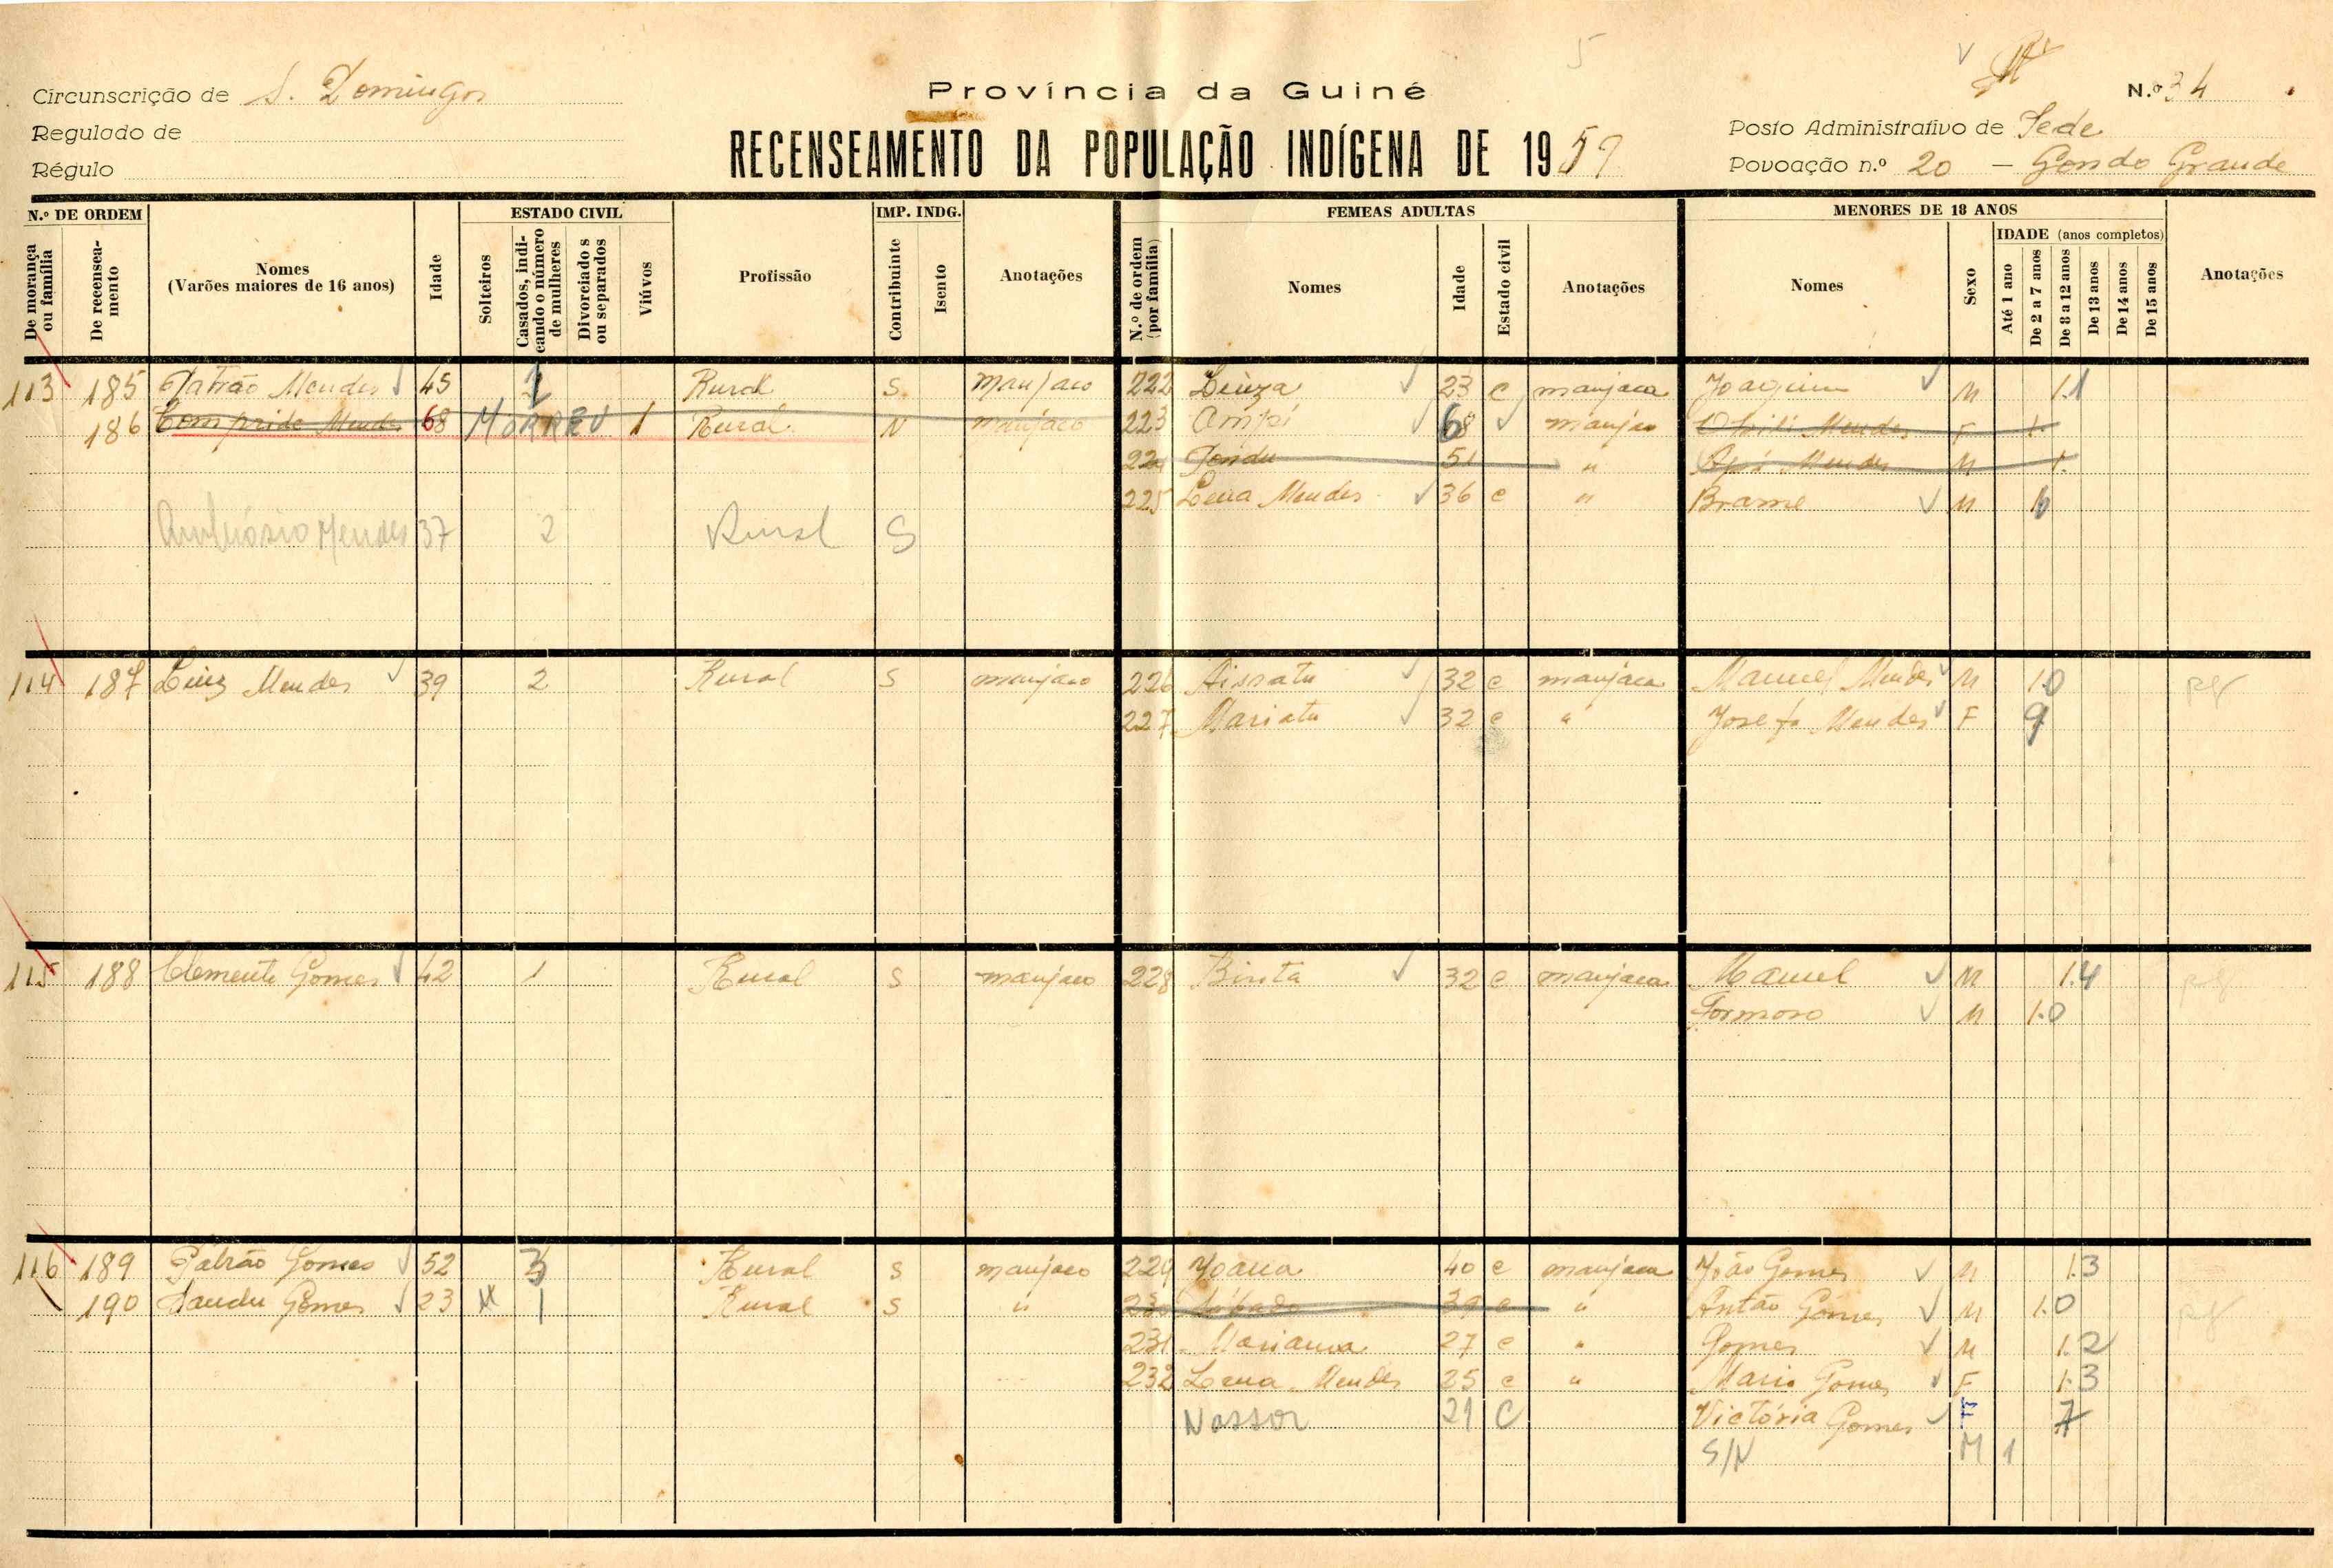 5
Província da Guiné
RECENSEAMENTO DA POPULAÇÃO INDÍGENA DE 1959
Circunscrição de S. Domingos
Regulado de
Régulo
N.º 34
Posto Administrativo de Sede
Povoação n.º 20 —
Grande
N.º DE ORDEM
De morança ou família
De recenseamento
Nomes
(Varões maiores de 16 anos)
Idade
ESTADO CIVIL
Solteiros
Casados, indicando o número de mulheres
Divorciados ou separados
Viúvos
Profissão
IMP. INDG.
Contribuinte
Isento
Anotações
FEMEAS ADULTAS
N.º de ordem (por família)
Nomes
Idade
Estado civil
Anotações
MENORES DE 18 ANOS
Nomes
Sexo
IDADE (anos completos)
Até 1 ano
De 2 a 7 anos
De 8 a 12 anos
De 13 anos
De 14 anos
De 15 anos
Anotações
113 185 Patrão Mendes 45 Rural S manjaco 222 Luiza 23 c manjaca Joaquim M 11
186 Mendes 68 MORREU 1 Rural N manjaco 223 68 Mendes F 1
224 51 " Mendes M 1
225 Mendes 36 c " Brame M
Ambrósio Mendes 37 2 Rural S
114 187 Luiz Mendes 39 2 Rural S manjaco 226 Aissatu 32 c manjaca Manuel Mendes M 10
227 Mariatu 32 c " Josefa Mendes F 9
115 188 Clemente Gomes 42 1 Rural S manjaco 228 Binta 32 c manjaca Manuel M 14
Formoso M 10
116 189 Patrão Gomes 52 3 Rural S manjaco 229 Joana 40 c manjaca João Gomes M 13
190 Sandu Gomes 23 1 Rural S " 230 c " Antão Gomes M 10
231 Mariama 27 c " Gomes M 12
232 Mendes 25 c " Maria Gomes F 13
Nassor 21 C Victória Gomes F 7
S/N M 1